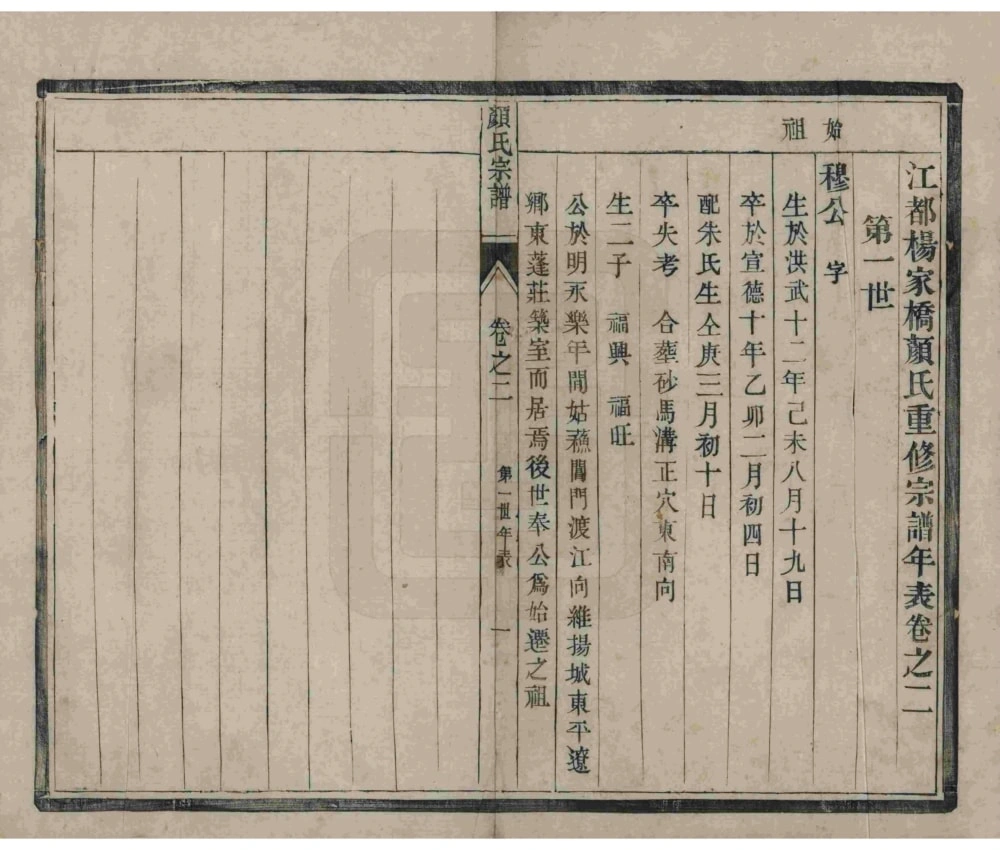 江都楊家橋顏氏重修宗譜年表卷之二
第一世
始祖
穆公 字
生於洪武十二年己未八月十九日
卒於宣德十年乙卯二月初四日
配朱氏生仝庚三月初十日
卒失考 合塟砂馬溝正穴東南向
生二子 福興 福旺
公於明永樂年間姑蘇閶門渡江向維揚城東平遼
鄉東蓬莊築室而居焉後世奉公爲始遷之祖
顏氏宗譜 卷之二 第一世年表 一